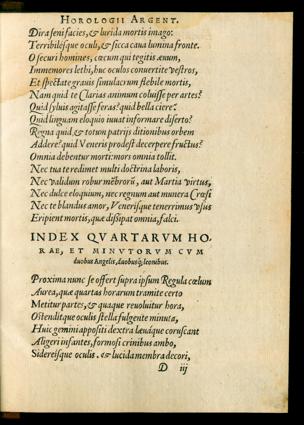 HOROLOGII ARGENT.
Dira seni facies, & lurida mortis imago:
Terribilésque oculi, & sicca caua lumina fronte.
O securi homines, cœcum qui tegitis æuum,
Immemores lethi, huc oculos conuertite vestros,
Et spectate grauis simulacrum flebile mortis,
Nam quid te Clarias animum coluisse per artes?
Quid stylus agitasse feras? quid bella ciere?
Quid linguam eloquio iuuat informare diserto?
Regna quid & totum patrijs ditionibus orbem
Addere? quid Veneris prodest decerpere fructus?
Omnia debentur morti: mors omnia tollit.
Nec tua te redimet multi doctrina laboris,
Nec validum robur mēbrorū, aut Martia virtus,
Nec dulce eloquium, nec regnum aut munera Crœsi
Nec te blandus amor, Venerisque tenerrimus vsus
Eripient mortis, quæ dissipat omnia, falci.
INDEX QVARTARVM HO-
RAE, ET MINVTORVM CVM
duobus Angelis, duobusq́; leonibus.
Proxima nunc se offert supra ipsum Regula cœlum
Aurea, quæ quartas horarum tramite certo
Metitur partes, & quaque reuoluitur hora,
Ostenditque oculis stella fulgente minuta,
Huic gemini appositi dextra leuáque coruscant
Aligeri infantes, formosi crinibus ambo,
Sidereisque oculis, & lucida membra decori,
D iij